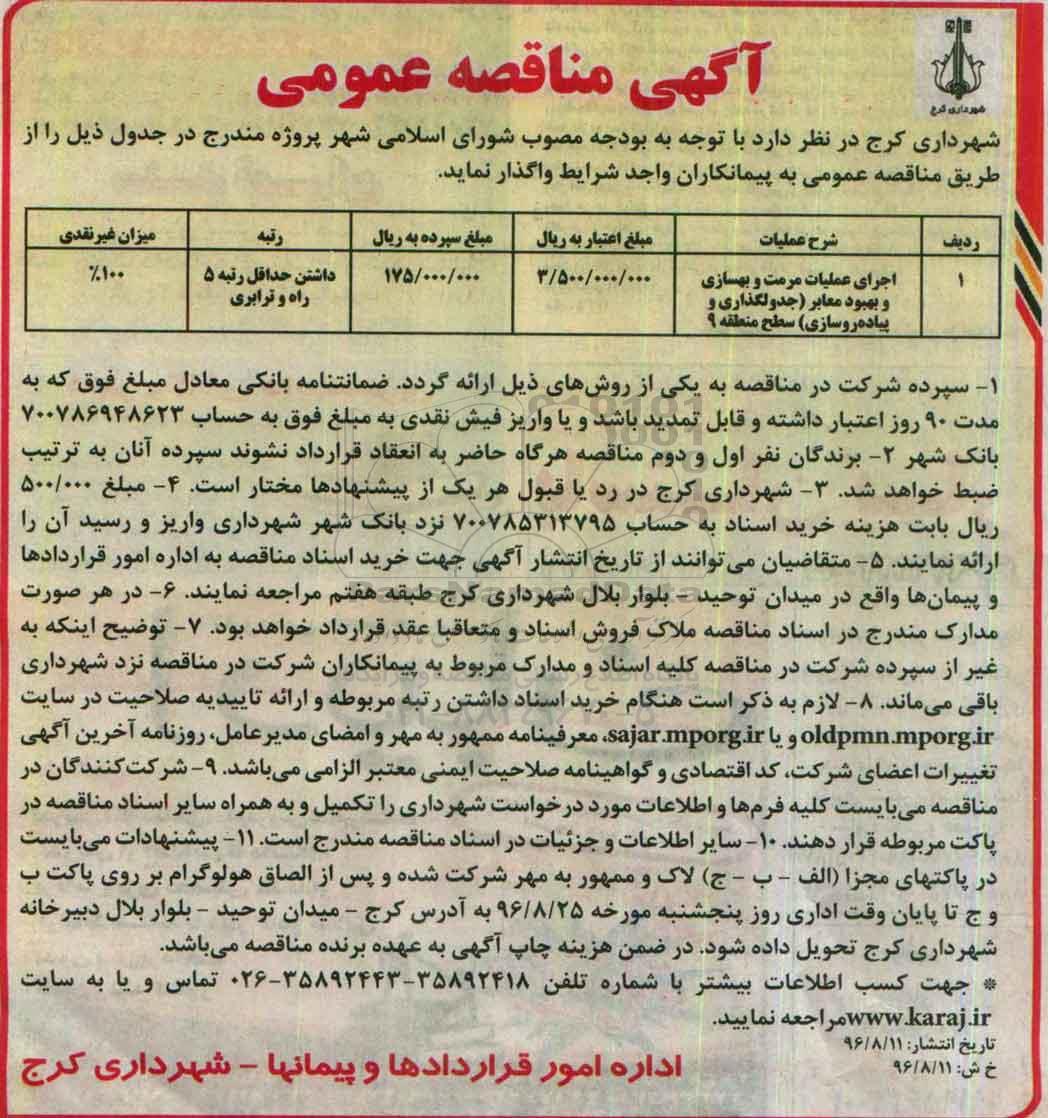 شهرداری کرج
آگهی مناقصه عمومی
شهرداری کرج در نظر دارد با توجه به بودجه مصوب شورای اسلامی شهر پروژه مندرج در جدول ذیل را از
طریق مناقصه عمومی به پیمانکاران واجد شرایط واگذار نماید.
ردیف شرح عملیات مبلغ اعتبار به ریال مبلغ سپرده به ریال رتبه میزان غیرنقدی
۱ اجرای عملیات مرمت و بهسازی ۳/۵۰۰/۰۰۰/۰۰۰ ۱۷۵/۰۰۰/۰۰۰ داشتن حداقل رتبه ۵ ۱۰۰٪
و بهبود معابر (جدولگذاری و راه و ترابری
پیاده‌روسازی) سطح منطقه ۹
۱- سپرده شرکت در مناقصه به یکی از روش‌های ذیل ارائه گردد. ضمانتنامه بانکی معادل مبلغ فوق که به
مدت ۹۰ روز اعتبار داشته و قابل تمدید باشد و یا واریز فیش نقدی به مبلغ فوق به حساب ۷۰۰۷۸۶۹۴۸۶۲۳
بانک شهر ۲- برندگان نفر اول و دوم مناقصه هرگاه حاضر به انعقاد قرارداد نشوند سپرده آنان به ترتیب
ضبط خواهد شد. ۳- شهرداری کرج در رد یا قبول هر یک از پیشنهادها مختار است. ۴- مبلغ ۵۰۰/۰۰۰
ریال بابت هزینه خرید اسناد به حساب ۷۰۰۷۸۵۳۱۳۷۹۵ نزد بانک شهر شهرداری واریز و رسید آن را
ارائه نمایند. ۵- متقاضیان می‌توانند از تاریخ انتشار آگهی جهت خرید اسناد مناقصه به اداره امور قراردادها
و پیمان‌ها واقع در میدان توحید - بلوار بلال شهرداری کرج طبقه هفتم مراجعه نمایند. ۶- در هر صورت
مدارک مندرج در اسناد مناقصه ملاک فروش اسناد و متعاقبا عقد قرارداد خواهد بود. ۷- توضیح اینکه به
غیر از سپرده شرکت در مناقصه کلیه اسناد و مدارک مربوط به پیمانکاران شرکت در مناقصه نزد شهرداری
باقی می‌ماند. ۸- لازم به ذکر است هنگام خرید اسناد داشتن رتبه مربوطه و ارائه تاییدیه صلاحیت در سایت
oldpmn.mporg.ir و یا sajar.mporg.ir، معرفینامه ممهور به مهر و امضای مدیرعامل، روزنامه آخرین آگهی
تغییرات اعضای شرکت، کد اقتصادی و گواهینامه صلاحیت ایمنی معتبر الزامی می‌باشد. ۹- شرکت‌کنندگان در
مناقصه می‌بایست کلیه فرم‌ها و اطلاعات مورد درخواست شهرداری را تکمیل و به همراه سایر اسناد مناقصه در
پاکت مربوطه قرار دهند. ۱۰- سایر اطلاعات و جزئیات در اسناد مناقصه مندرج است. ۱۱- پیشنهادات می‌بایست
در پاکتهای مجزا (الف - ب - ج) لاک و ممهور به مهر شرکت شده و پس از الصاق هولوگرام بر روی پاکت ب
و ج تا پایان وقت اداری روز پنجشنبه مورخه ۹۶/۸/۲۵ به آدرس کرج - میدان توحید - بلوار بلال دبیرخانه
شهرداری کرج تحویل داده شود. در ضمن هزینه چاپ آگهی به عهده برنده مناقصه می‌باشد.
* جهت کسب اطلاعات بیشتر با شماره تلفن ۳۵۸۹۲۴۱۸-۳۵۸۹۲۴۴۳-۰۲۶ تماس و یا به سایت
www.karaj.ir مراجعه نمایید.
تاریخ انتشار: ۹۶/۸/۱۱
خ ش: ۹۶/۸/۱۱
اداره امور قراردادها و پیمانها - شهرداری کرج